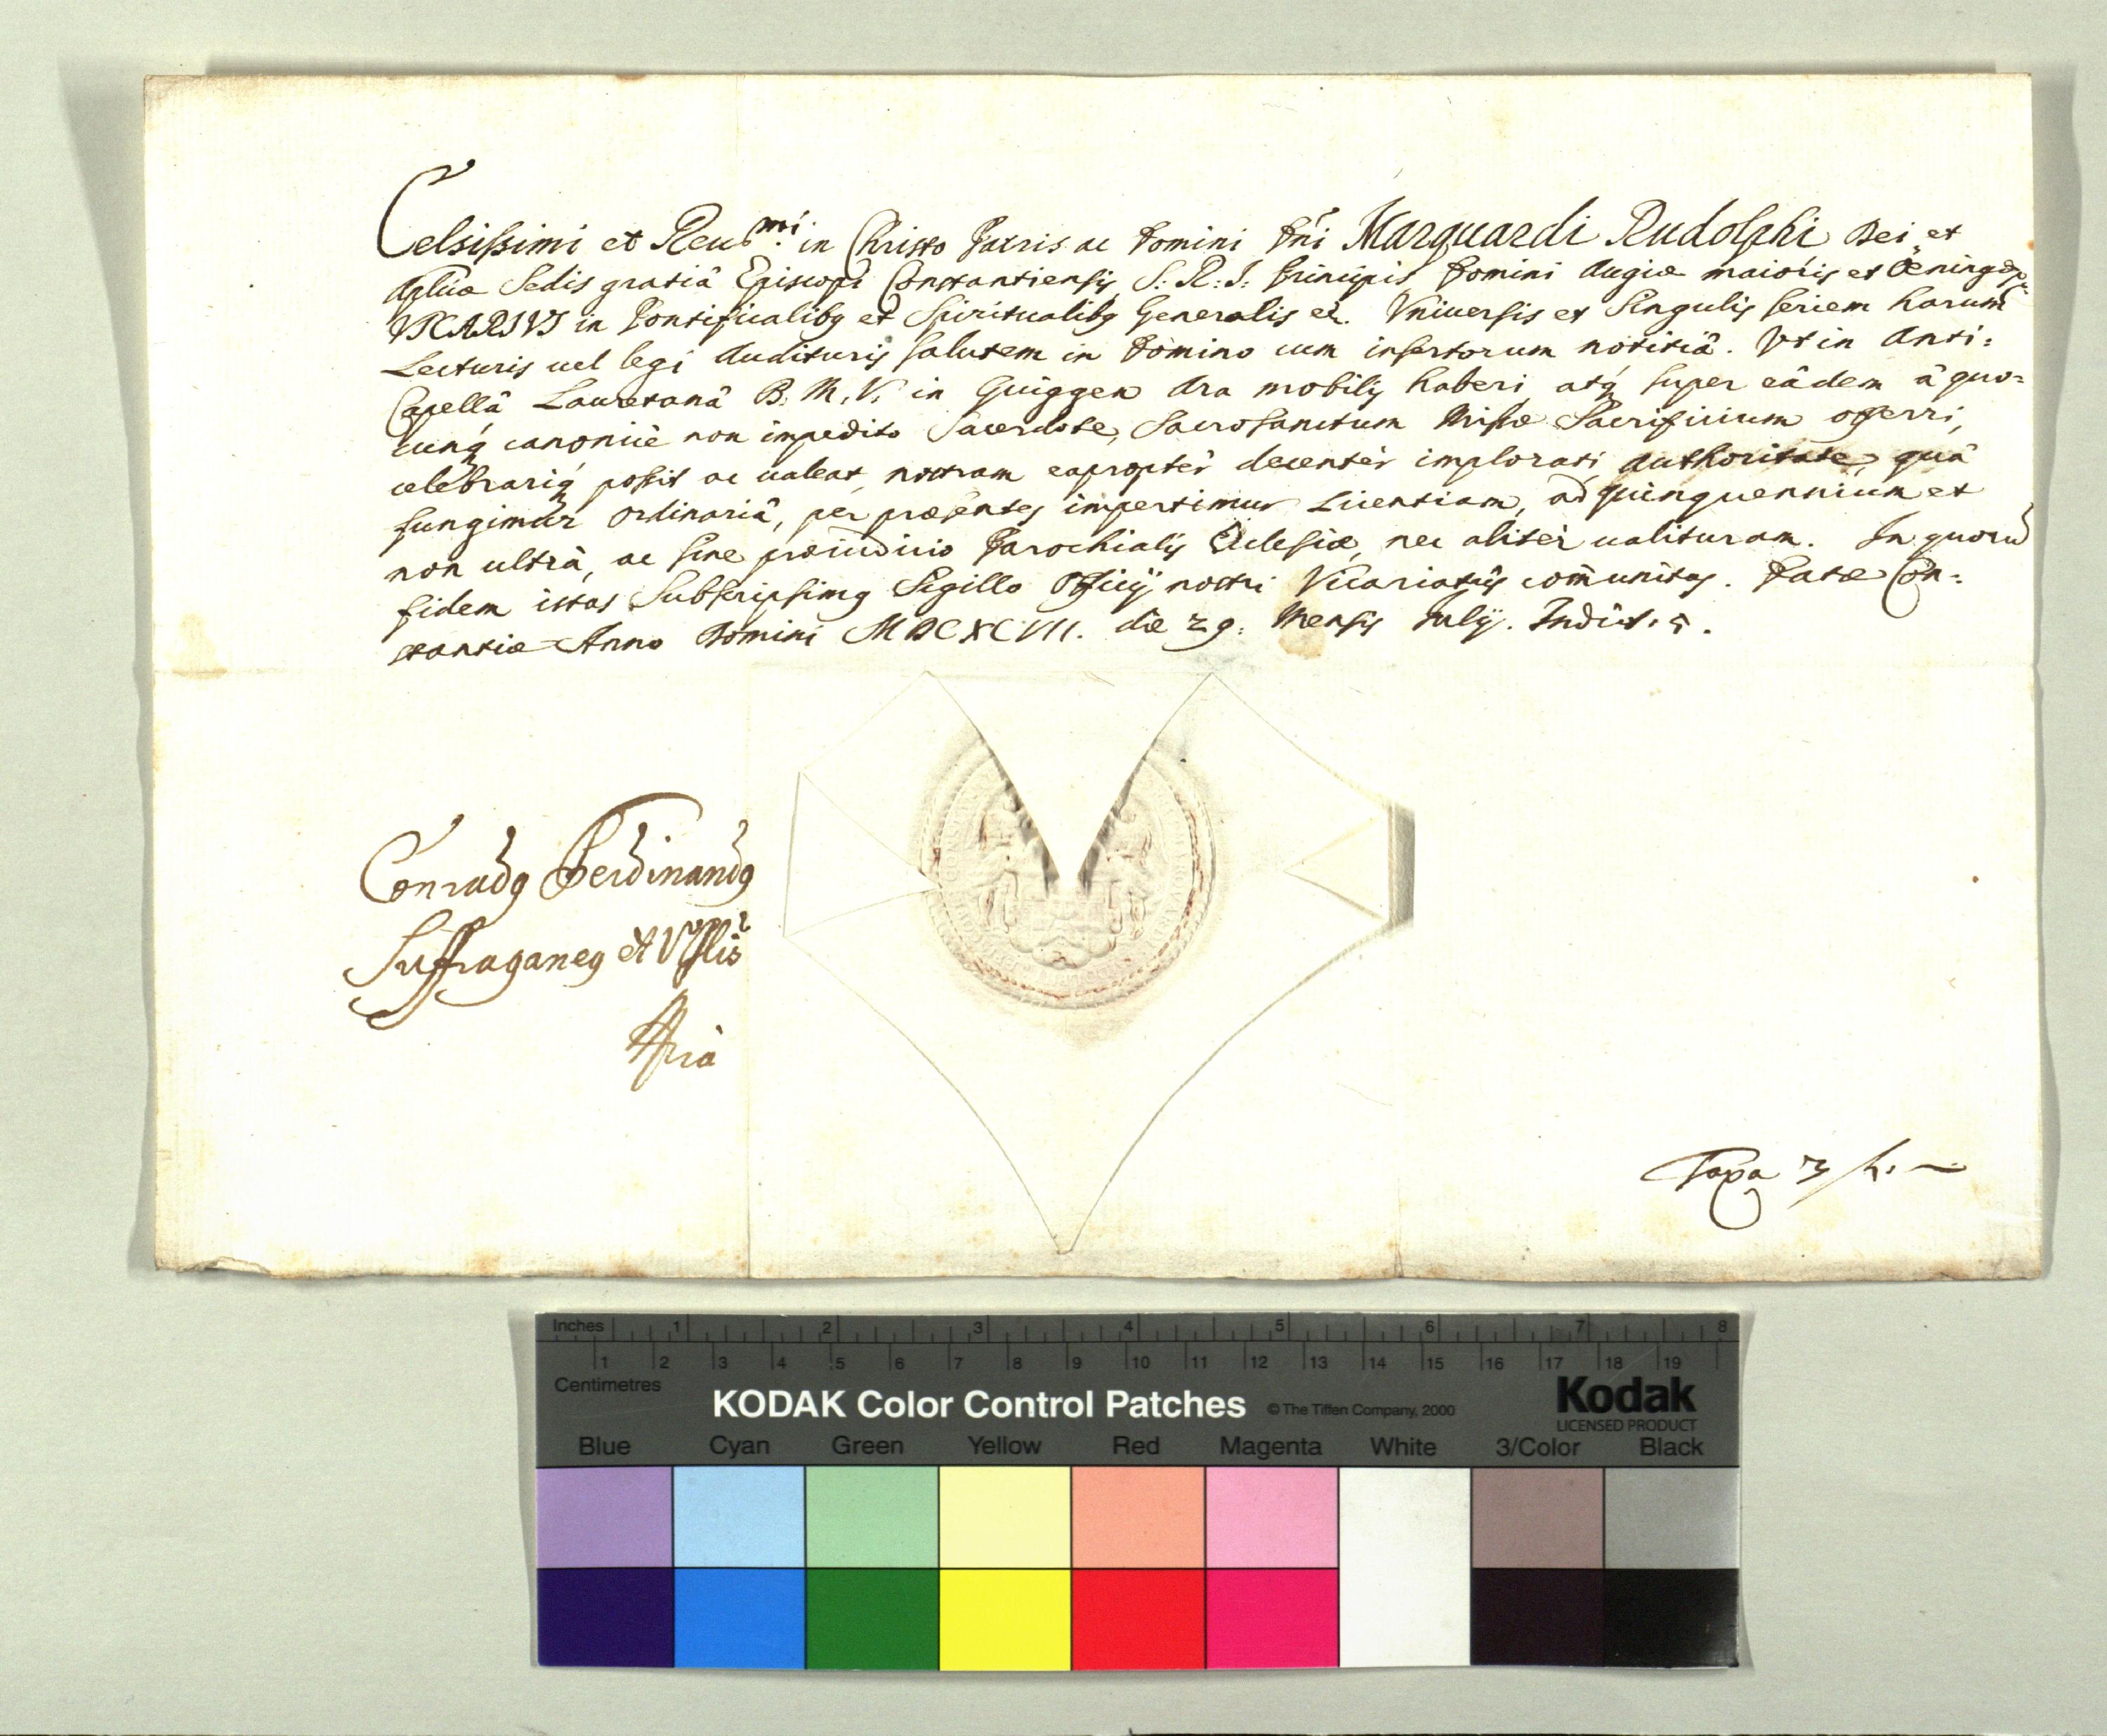 Celsissimi et Reud^mi: in Christo Patris ac Domini Dni Marquardi Rudolphi Dei et
Aplicæ Sedis gratiâ Episcopi Constantiensis S: R: I: Principis Domini Augiæ maioris et Oeningæ
VICARIVS in Pontificalibq et Spiritualibq Generalis etc. Vniuersis et Singulis seriem harum
Lecturis uel legi Audituris salutem in Domino cum insertorum notitiâ. Vt in Anti:
Capellâ Lauretanâ B. M. V. in Guiggen Ara mobilis haberi, atq super eâdem â quo=
cunq canonicè non impedito Sacerdote, Sacrosanctum Missæ Sacrificium offerri,
celebrariq possit ac ualeat, nostram eapropter decentèr implorati Authoritate, quâ
fungimur Ordinariâ, per præsentes impertimur Licentiam, ad quinquennium et
non ultrà, ac sine præiudicio Parochialis Ecclesiæ, nec alitèr ualituram. In quorũ
fidem istas Subscripsimq Sigillo Officij nostri Vicariatûs com̃unitas. Datæ Con=
stantiæ Anno Domini MDCXCVII. die 29. Mensis Julij. Indict. 5.
Conradq Ferdinandq
Suffraganeq et
Taxa 3
Inches 1 2 3 4 5 6 7 8
1 2 3 4 5 6 7 8 9 10 11 12 13 14 15 16 17 18 19
Centimetres
KODAK Color Control Patches © The Tiffen Company, 2000
Kodak
LICENSED PRODUCT
Blue Cyan Green Yellow Red Magenta White 3/Color Black